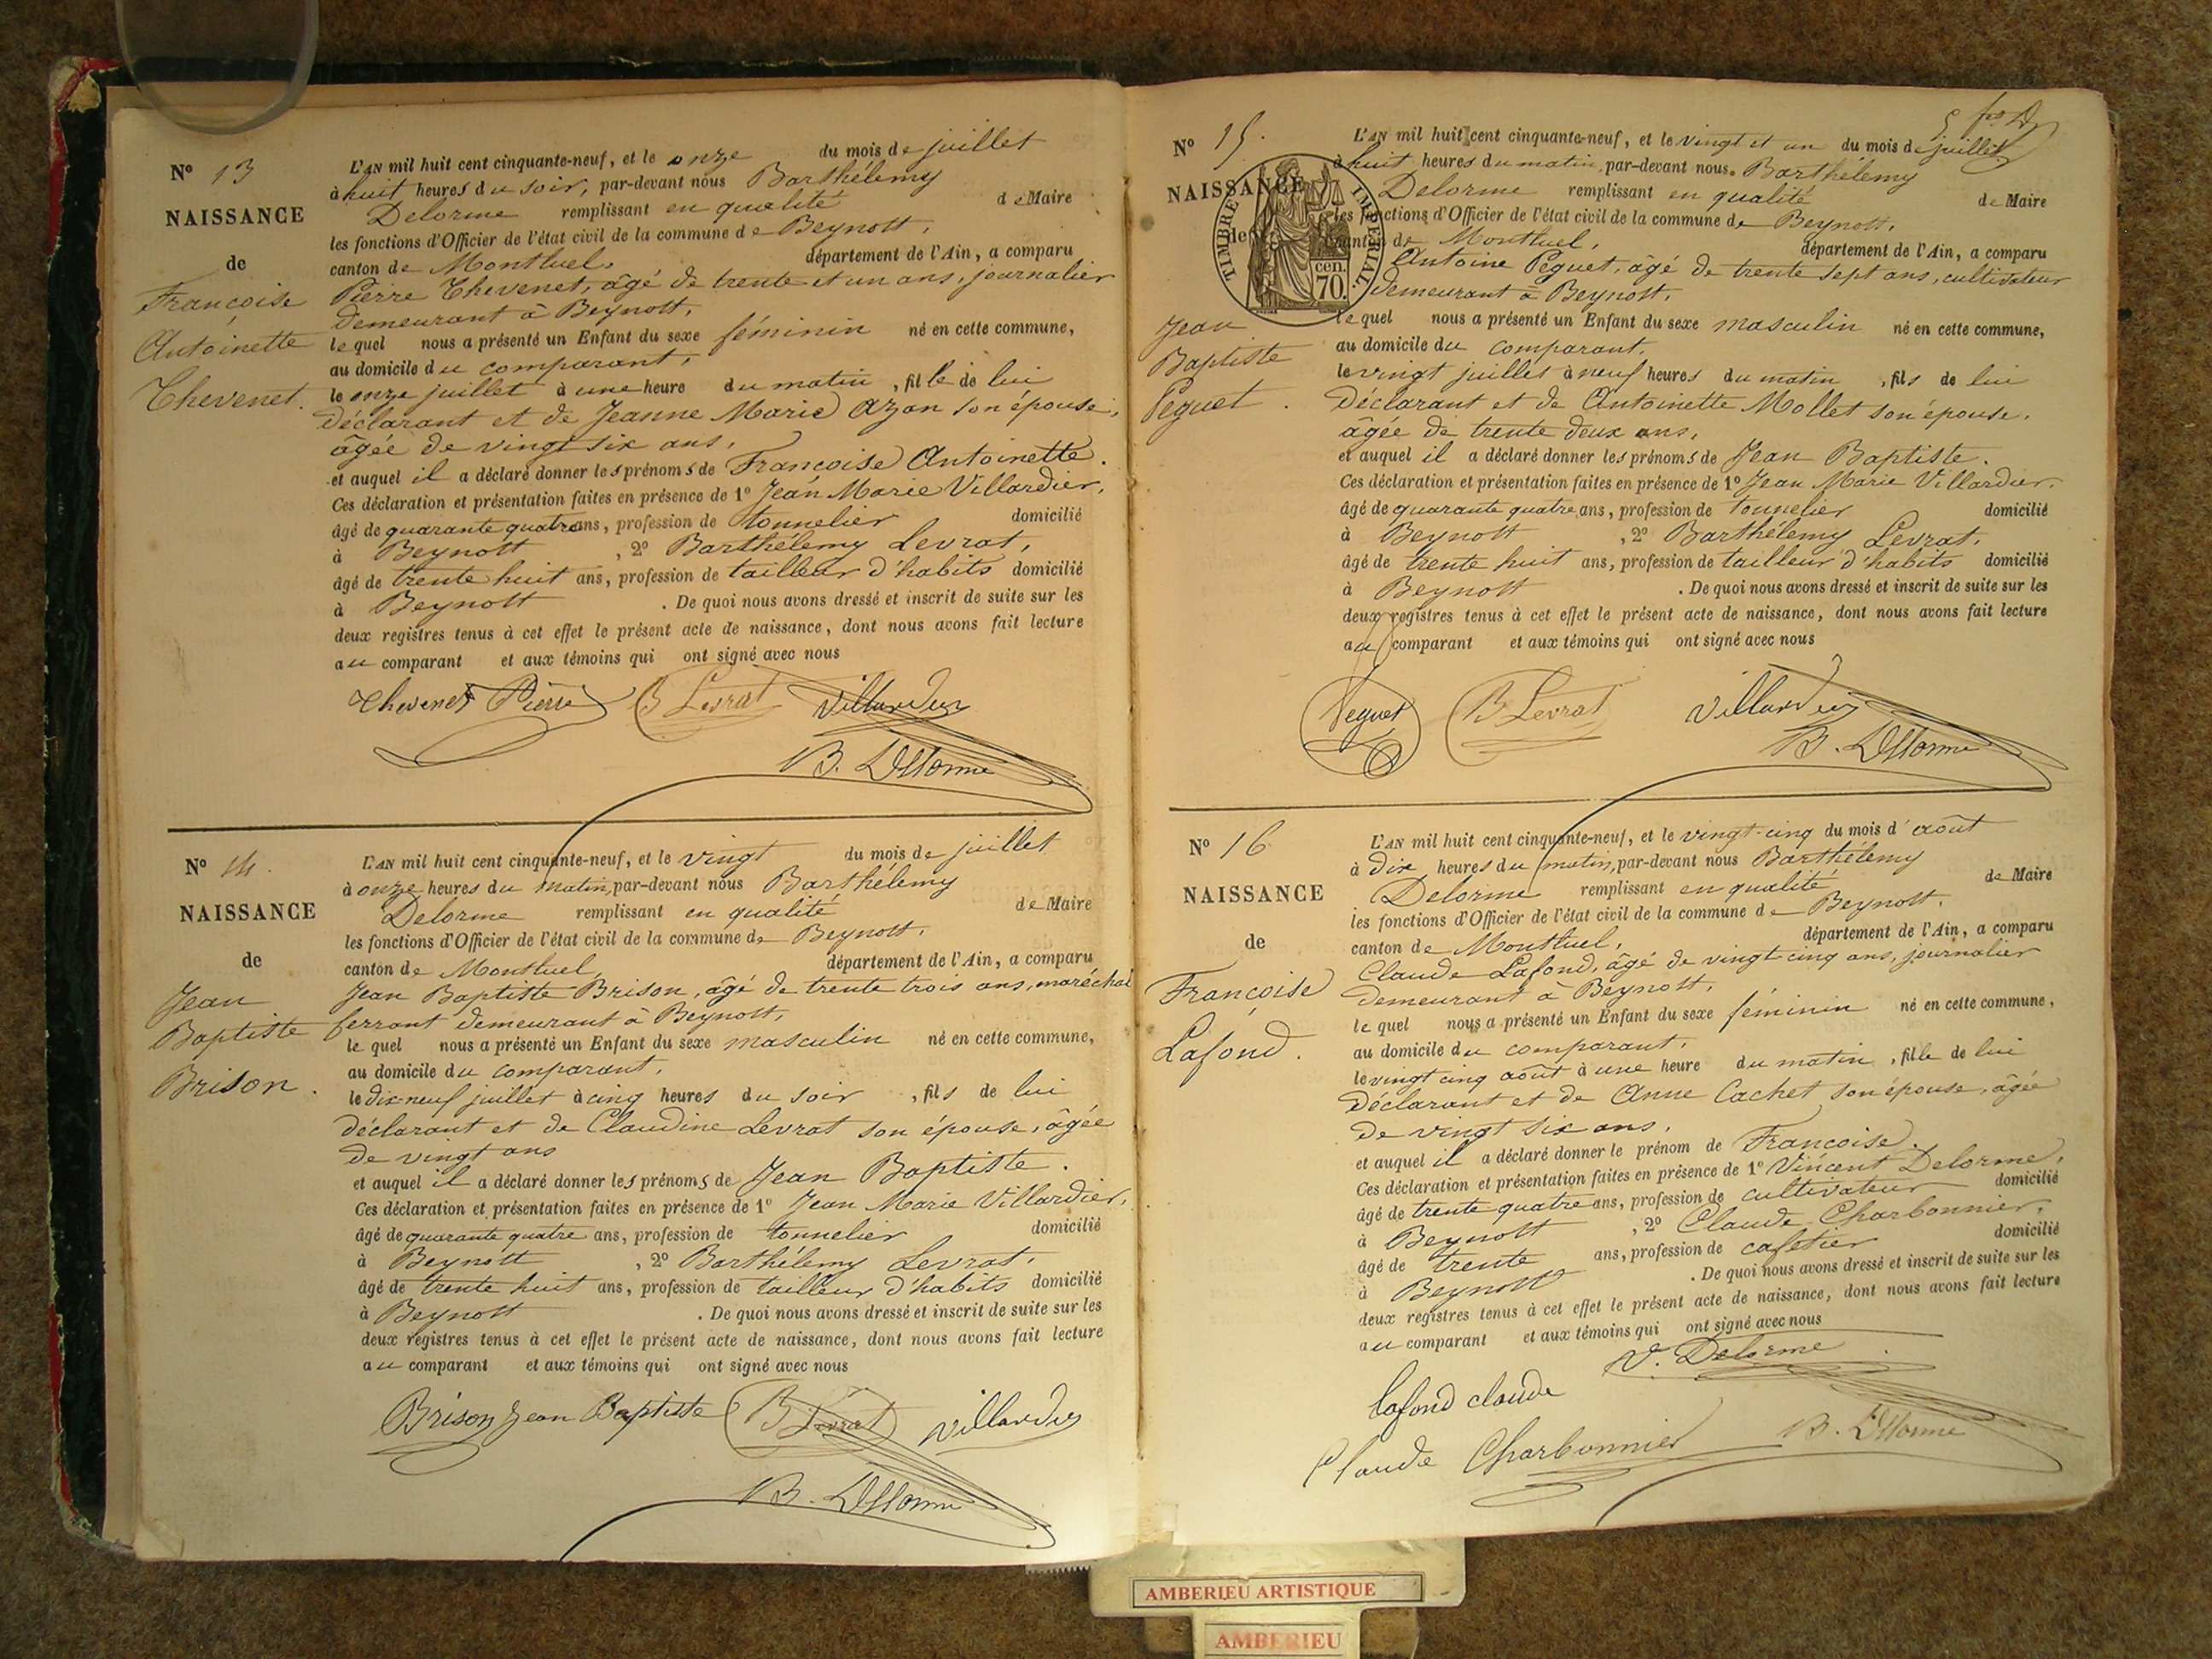 N° 13
NAISSANCE
de
Françoise
Antoinette
Thevenet.
L'AN mil huit cent cinquante-neuf, et le onze du mois de juillet
à huit heures du soir, par-devant nous Barthélemy
Delorme remplissant en qualité de Maire
les fonctions d'Officier de l'état civil de la commune de Beynost,
canton de Montluel, département de l'Ain, a comparu
Pierre Thevenet, âgé de trente et un ans, journalier
demeurant à Beynost,
lequel nous a présenté un Enfant du sexe féminin né en cette commune,
au domicile du comparant,
le onze juillet à une heure du matin, fille de lui
déclarant et de Jeanne Marie Azan son épouse,
âgée de vingt six ans,
et auquel il a déclaré donner les prénoms de Françoise Antoinette.
Ces déclaration et présentation faites en présence de 1° Jean Marie Villardier,
âgé de quarante quatre ans, profession de tonnelier domicilié
à Beynost, 2° Barthélemy Levrat,
âgé de trente huit ans, profession de tailleur d'habits domicilié
à Beynost. De quoi nous avons dressé et inscrit de suite sur les
deux registres tenus à cet effet le présent acte de naissance, dont nous avons fait lecture
au comparant et aux témoins qui ont signé avec nous
Thevenet Pierre B Levrat Villardier
B. Delorme
N° 14.
NAISSANCE
de
Jean
Baptiste
Brison.
L'AN mil huit cent cinquante-neuf, et le vingt du mois de juillet
à onze heures du matin, par-devant nous Barthélemy
Delorme remplissant en qualité de Maire
les fonctions d'Officier de l'état civil de la commune de Beynost,
canton de Montluel, département de l'Ain, a comparu
Jean Baptiste Brison, âgé de trente trois ans, maréchal
ferrant demeurant à Beynost,
lequel nous a présenté un Enfant du sexe masculin né en cette commune,
au domicile du comparant,
le dix-neuf juillet à cinq heures du soir, fils de lui
déclarant et de Claudine Levrat son épouse, âgée
de vingt ans
et auquel il a déclaré donner les prénoms de Jean Baptiste.
Ces déclaration et présentation faites en présence de 1° Jean Marie Villardier,
âgé de quarante quatre ans, profession de tonnelier domicilié
à Beynost, 2° Barthélemy Levrat,
âgé de trente huit ans, profession de tailleur d'habits domicilié
à Beynost. De quoi nous avons dressé et inscrit de suite sur les
deux registres tenus à cet effet le présent acte de naissance, dont nous avons fait lecture
au comparant et aux témoins qui ont signé avec nous
Brison Jean Baptiste B Levrat Villardier
B. Delorme
N° 15.
NAISSANCE
de
Jean
Baptiste
Peguet.
TIMBRE IMPERIAL
70 cen.
L'AN mil huit cent cinquante-neuf, et le vingt et un du mois de juillet
à huit heures du matin, par-devant nous Barthélemy
Delorme remplissant en qualité de Maire
les fonctions d'Officier de l'état civil de la commune de Beynost,
canton de Montluel, département de l'Ain, a comparu
Antoine Peguet, âgé de trente sept ans, cultivateur
demeurant à Beynost,
lequel nous a présenté un Enfant du sexe masculin né en cette commune,
au domicile du comparant,
le vingt juillet à neuf heures du matin, fils de lui
déclarant et de Antoinette Mollet son épouse,
âgée de trente deux ans,
et auquel il a déclaré donner les prénoms de Jean Baptiste.
Ces déclaration et présentation faites en présence de 1° Jean Marie Villardier,
âgé de quarante quatre ans, profession de tonnelier domicilié
à Beynost, 2° Barthélemy Levrat,
âgé de trente huit ans, profession de tailleur d'habits domicilié
à Beynost. De quoi nous avons dressé et inscrit de suite sur les
deux registres tenus à cet effet le présent acte de naissance, dont nous avons fait lecture
au comparant et aux témoins qui ont signé avec nous
Peguet B Levrat Villardier
B. Delorme
N° 16
NAISSANCE
de
Françoise
Lafond.
L'AN mil huit cent cinquante-neuf, et le vingt-cinq du mois d'août
à dix heures du matin, par-devant nous Barthélemy
Delorme remplissant en qualité de Maire
les fonctions d'Officier de l'état civil de la commune de Beynost,
canton de Montluel, département de l'Ain, a comparu
Claude Lafond, âgé de vingt cinq ans, journalier
demeurant à Beynost,
lequel nous a présenté un Enfant du sexe féminin né en cette commune,
au domicile du comparant,
le vingt cinq août à une heure du matin, fille de lui
déclarant et de Anne Cachet son épouse, âgée
de vingt six ans,
et auquel il a déclaré donner le prénom de Françoise.
Ces déclaration et présentation faites en présence de 1° Vincent Delorme,
âgé de trente quatre ans, profession de cultivateur domicilié
à Beynost, 2° Claude Charbonnier,
âgé de trente ans, profession de cafetier domicilié
à Beynost. De quoi nous avons dressé et inscrit de suite sur les
deux registres tenus à cet effet le présent acte de naissance, dont nous avons fait lecture
au comparant et aux témoins qui ont signé avec nous
V. Delorme
Lafond claude
Claude Charbonnier B. Delorme
AMBERIEU ARTISTIQUE
AMBERIEU